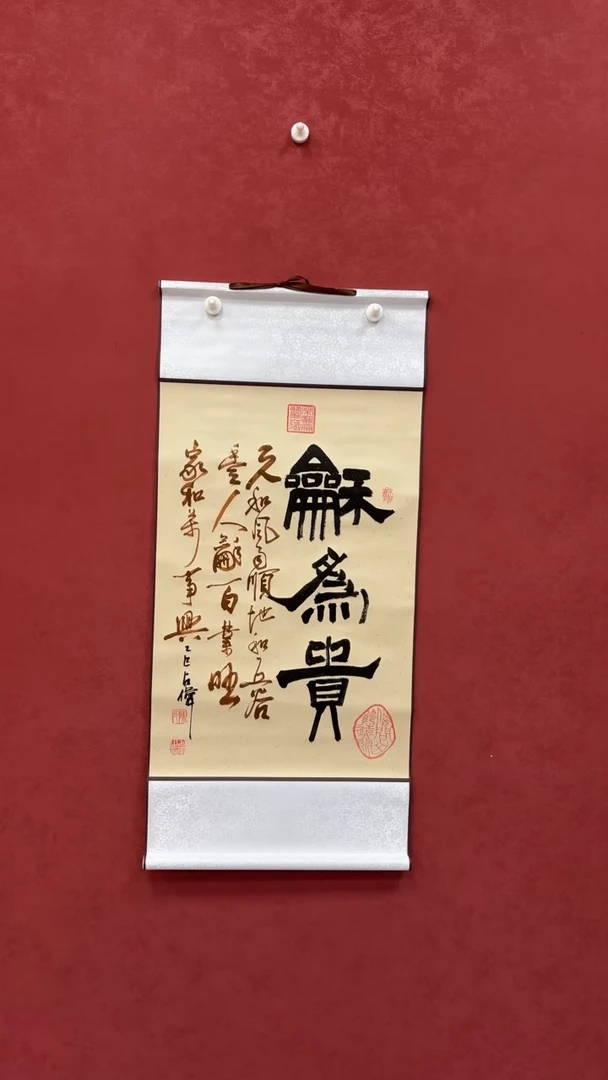 龢爲貴
天和风雨順地和五谷
豐人龢百業旺
家和萬事興乙巳占偉